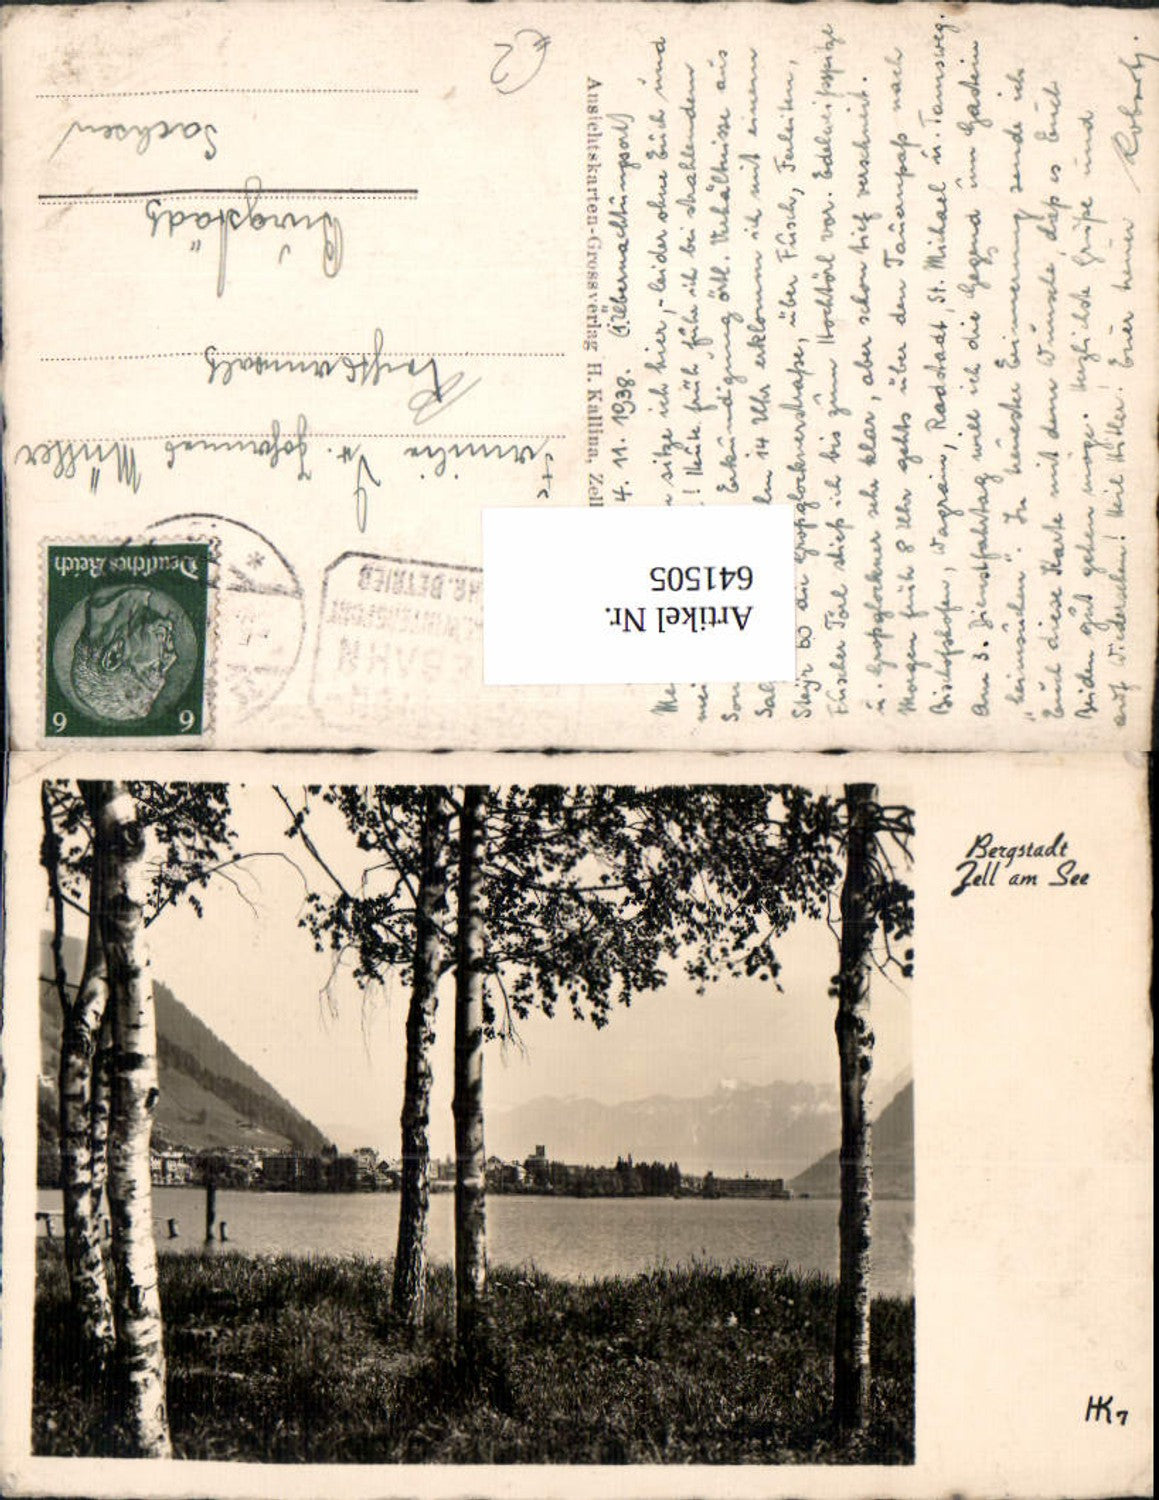 4. 11. 1938. (Übernachtungsort)
sitze ich hier, - leider ohne Euch und
! Heute früh fuhr ich bei strahlendem
Son Erkundigung örtl. Verhältnisse aus
Sal 14 Uhr erklomm ich mit einem
Steyr 50 die Großglocknerstraße, über Fusch, Ferleiten,
Fuscher Törl stieß ich bis zum Hochtörl vor. Edelweißspitze
u. Großglockner sehr klar, aber schon tief verschneit.
Morgen früh 8 Uhr gehts über den Tauernpaß nach
Bischofshofen, Wagrain, Radstadt, St. Michael u. Tamsweg.
Am 3. Dienstfahrtag will ich die Gegend um Gastein
"heimsuchen". In treuester Erinnerung sende ich
Euch diese Karte mit dem Wunsche, daß es Euch
Beiden gut gehen möge. Herzlichste Grüße und
auf Wiedersehen! Heil Hitler! Euer treuer
Ansichtskarten-Grossverlag H. Kallina, Zell
Familie Dr. Johannes Müller
Rechtsanwalt
Burgstädt
Sachsen
Deutsches Reich
6 6
BETRIEB
Artikel Nr.
641505
Bergstadt
Zell am See
HK 7